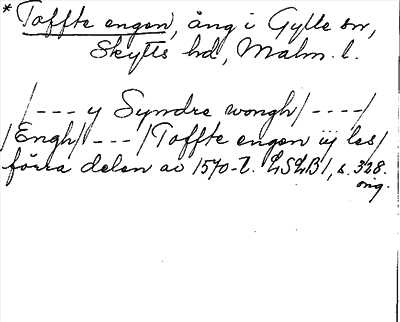 * Toffte engen, äng i Gylle sn,
Skytts hd, Malm. l.
/--- y Syndre wongh/----/
/Engh/---/Toffte engen iij les/
förra delen av 1570-t. LSLB1, s. 328.
orig.